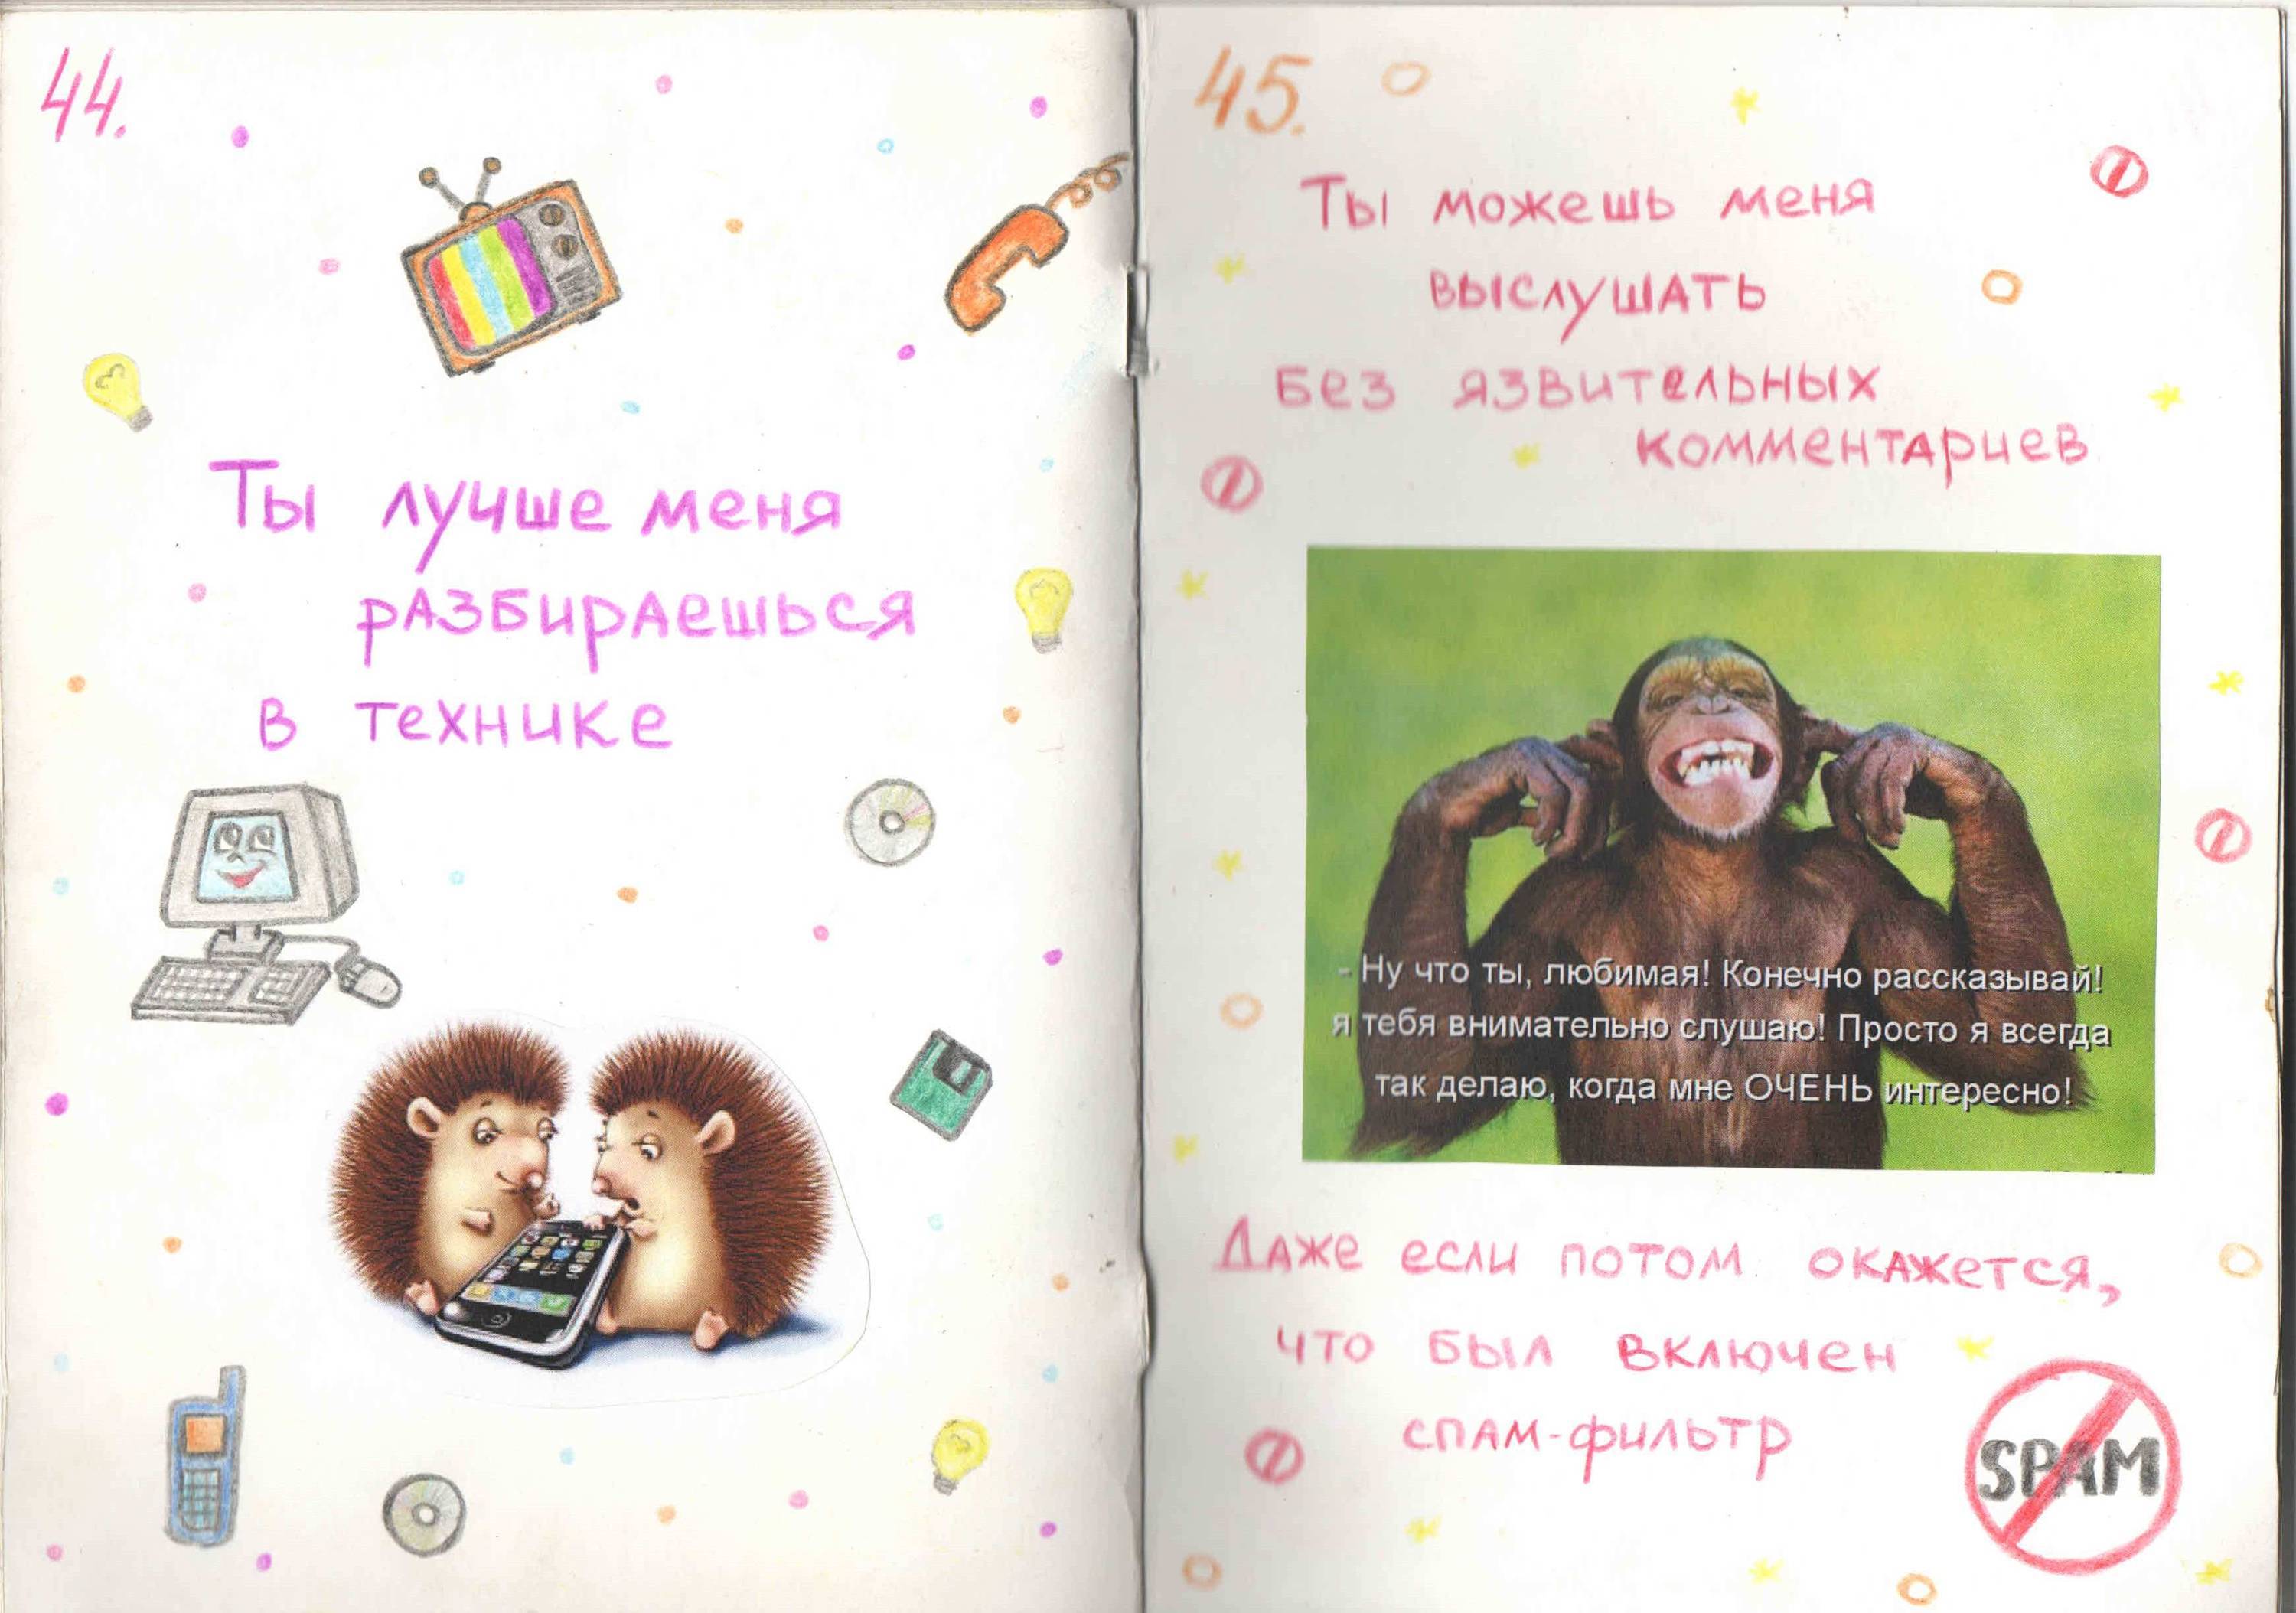 44.
Ты лучше меня
разбираешься
в технике
45.
Ты можешь меня
выслушать
без язвительных
комментариев
- Ну что ты, любимая! Конечно рассказывай!
я тебя внимательно слушаю! Просто я всегда
так делаю, когда мне ОЧЕНЬ интересно!
Даже если потом окажется,
что был включен
спам-фильтр
SPAM